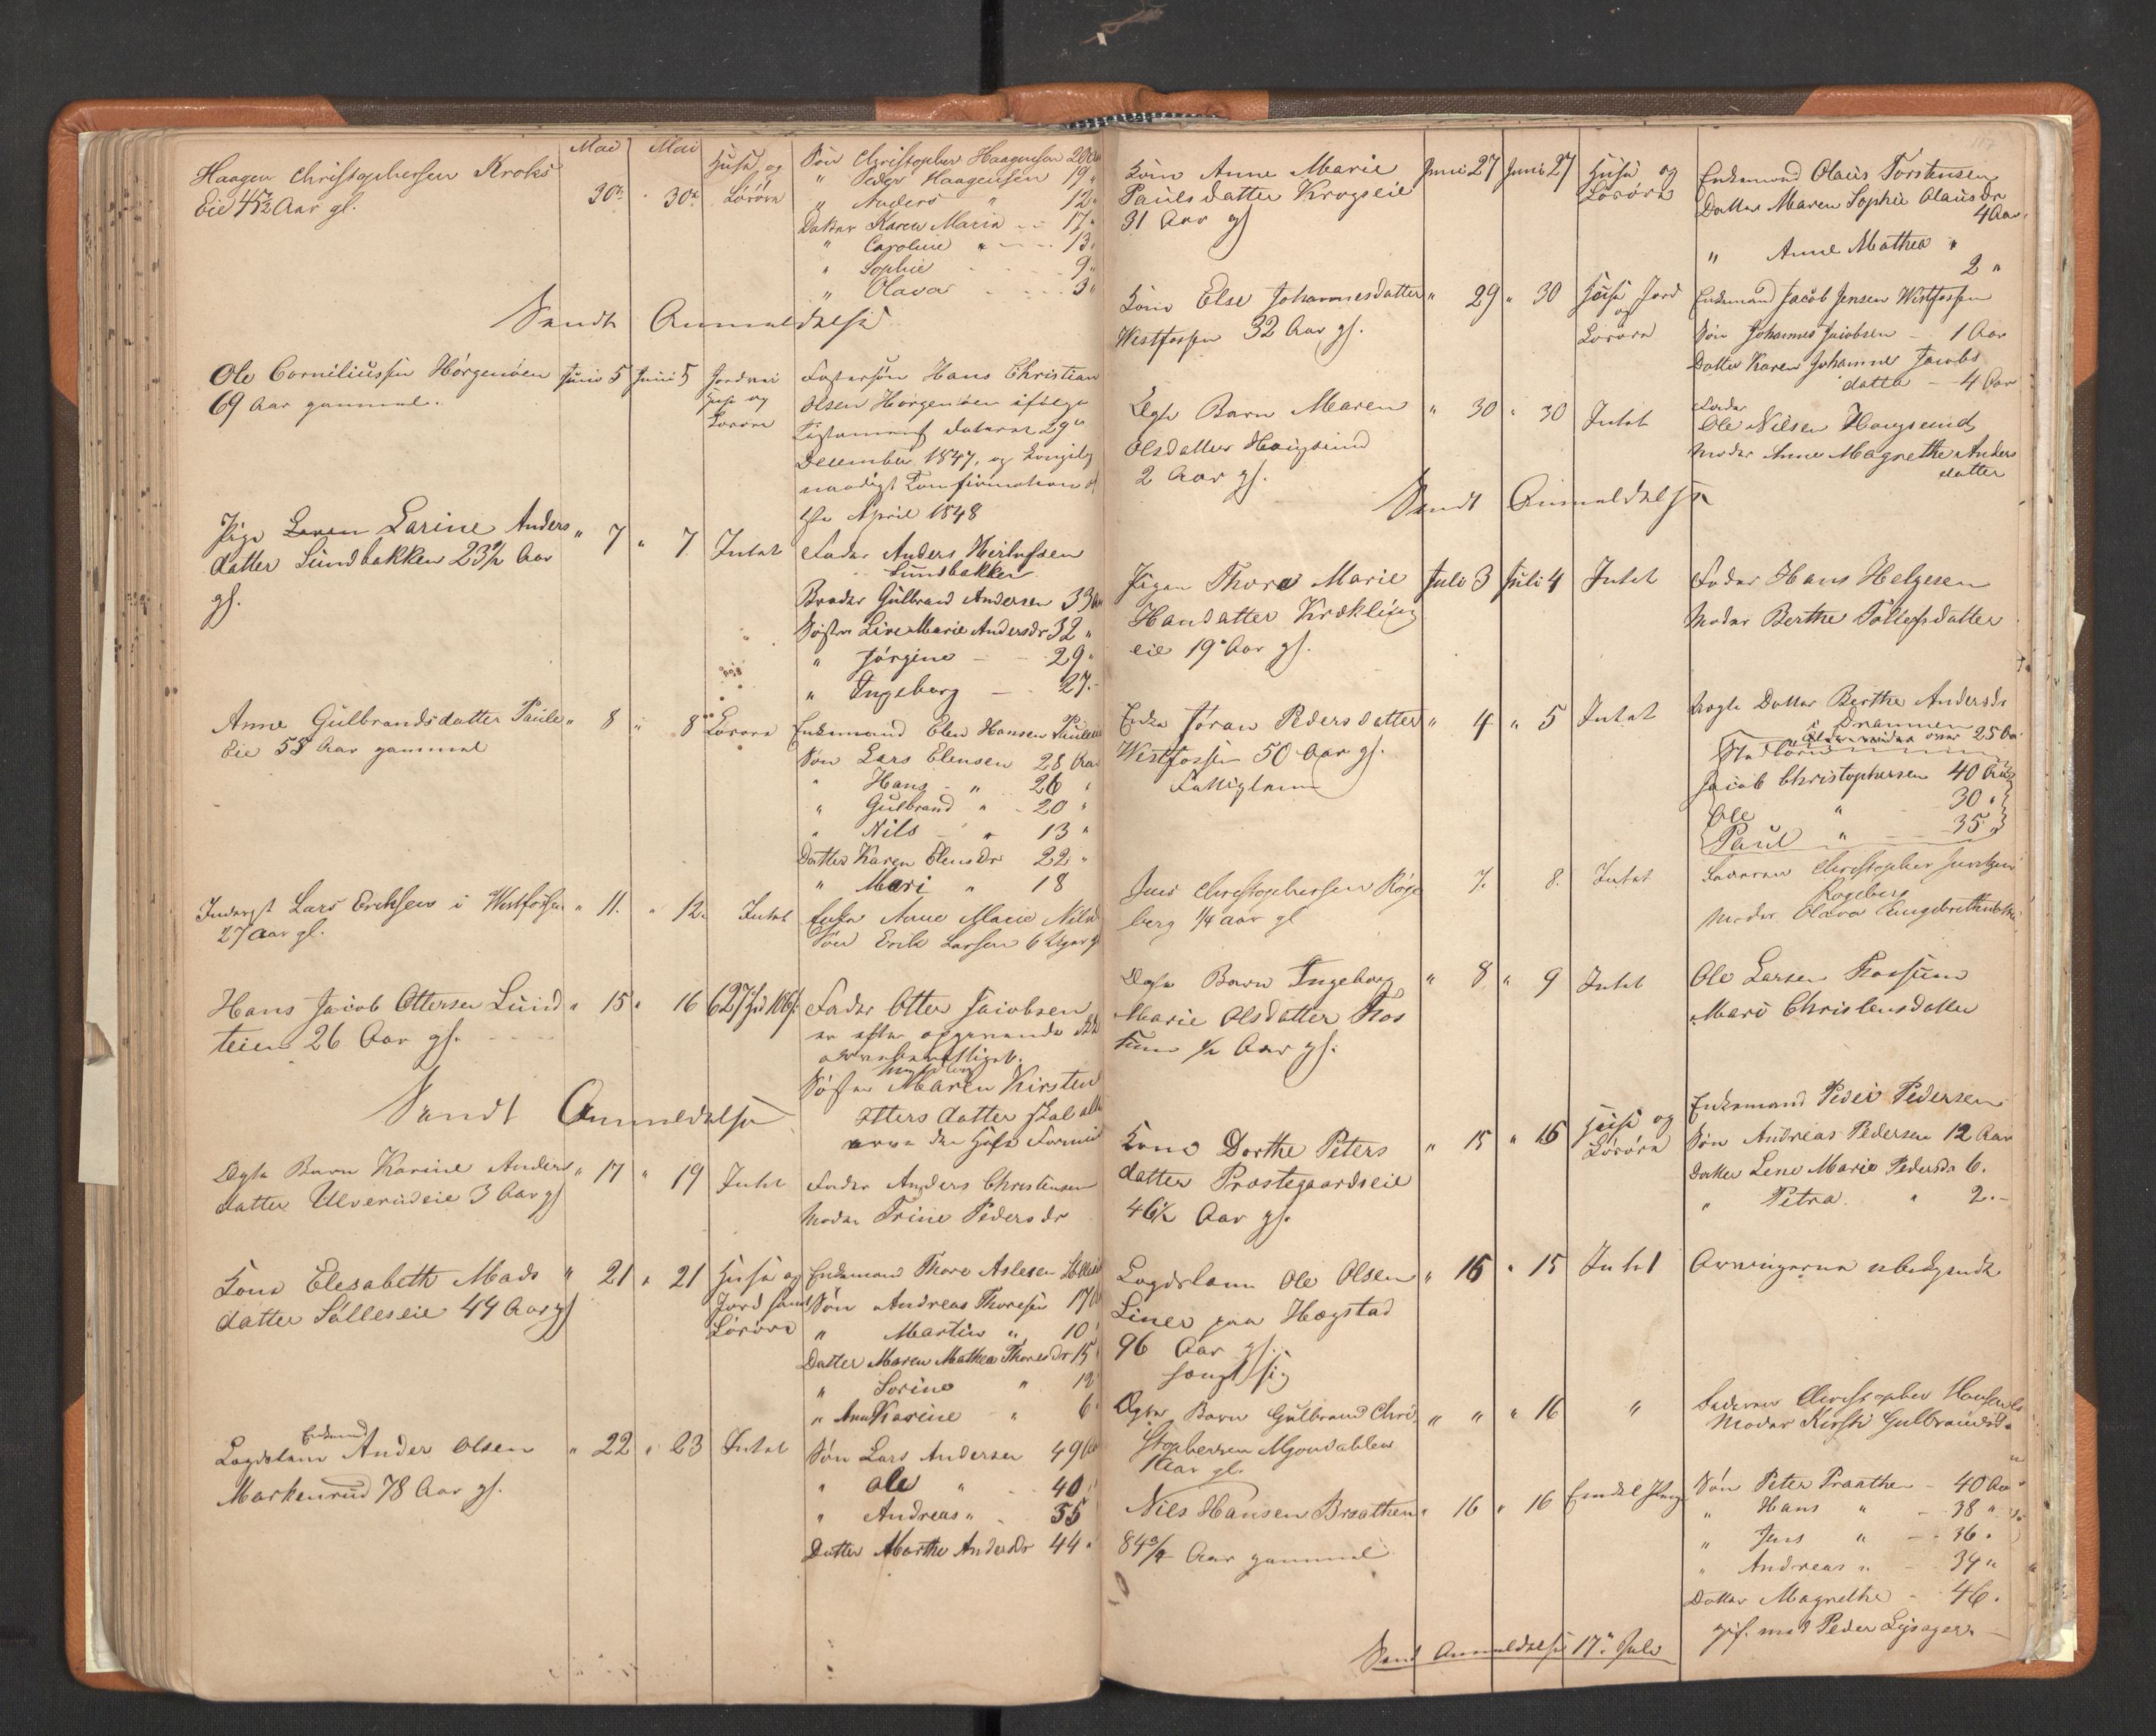 Mai Mai
Haagen Christophersen Kroks
Eie 45½ Aar gl.
30te " 30te
Huse og
Løsøre
Søn Christopher Haagensen 20 Aar
" Peder Haagensen 19 "
" Anders " 12 "
Datter Karen Maria 17 "
" Caroline " 13 "
" Sophie 9 "
" Olava 3 "
Sendt Anmeldelse
Ole Corneliussen Horgenøen
69 Aar gammel.
Juni 5 Juni 5
Jordvei
Huse og
Løsøre
Fostersøn Hans Christian
Olsen Horgenøen ifølge
Testament dateret 29de
December 1847, og Kongelig
naadigst Confirmation af
April 1848
Pige Larine Anders
datter Sundbakken 23½ Aar
gl.
" 7 " 7 Intet
Fader Anders
Sundbakken
Broder Gulbrand Andersen 33 Aar
Søster Live Marie Andersdr 32 "
" Jørgine — 29 "
" Ingeborg — 27 -
Anne Gulbrandsdatter Paule
Eie 58 Aar gammel
" 8 " 8 Løsøre
Enkemand Elen Hansen
Søn Lars Elensen 28 Aar
" Hans " 26 "
" Gulbrand " 20 "
" Nils " 13 "
Datter Karen Elensdr 22 "
" Mari " 18
Inderst Lars Erichsen i Westfossen
27 Aar gl.
" 11. " 12. Intet
Enke Anne Marie Nilsd
Søn Erik Larsen 6 Uger gl
Hans Jacob Ottersen Lund
teien 26 Aar gl.
" 15 " 16
Fader Otter Jacobsen
er efter opgivende ikke
arveberettiget.
Søster Maren Kirsten
Ottersdatter skal
arve den
Sendt Anmeldelse
Ægte Barn Karine Anders
datter Ulverudeie 3 Aar gl
" 17 " 19 Intet
Fader Anders Christensen
Moder Trine Pedersdr
Kone Elesabeth Mads
datter Sølleseie 44 Aar gl
" 21 " 21
Huse og
Jord samt
Løsøre
Enkemand Thore Aslesen
Søn Andreas Thoresen 17
" Martin " 10
Datter Maren Mathea Thoresdr 15
" Sorine " 12
" Anne Karine " 6
Enkemand
Lægdslem Ander Olsen
Markenrud 78 Aar gl.
" 22 " 23 Intet
Søn Lars Andersen 49 Aar
" Ole " 40
" Andreas " 35
Datter Marthe Andersdr 44 "
Kone Anne Marie
Paulsdatter Krogseie
31 Aar gl
Juni 27 Juni 27
Huse og
Løsøre
Enkemand Olaus Torstensen
Datter Maren Sophie Olausdr
4 Aar
" Anne Mathea "
2 "
Kone Else Johannesdatter
Westfossen 32 Aar gl.
" 29 " 30
Huse Jord
og
Løsøre
Enkemand Jacob Jensen Westfossen
Søn Johannes Jacobsen — 1 Aar
Datter Karen Johanne Jacobs
datter — 4 Aar
Ægte Barn Maren
Olsdatter Hougsund
2 Aar gl.
" 30 " 30 Intet
Fader
Ole Nilsen Hougsund
Moder Anne Magrethe Anders
datter
Sendt Anmeldelse
Pigen Thore Marie
Hansdatter Krækling
eie 19 Aar gl.
Juli 3 Juli 4 Intet
Fader Hans Helgesen
Moder Berthe Tollefsdatter
Enke Jøran Pedersdatter
Westfossen 50 Aar gl.
Fattiglem
" 4 " 5 Intet
Uægte Datter Berthe Andersdr
i Drammen
over 25 Aar
Stedbørn
Jacob Christophersen 40 Aar
Ole " 30 "
Paul " 35 "
Jens Christophersen Røge
berg ¼ aar gl
7. 8. Intet
Faderen Christopher
Rogeberg
Moder Olava
Ægte Barn Ingeborg
Marie Olsdatter Fos
sum ½ Aar gl.
" 8 " 9 Intet
Ole Larsen Fossum
Mari Christensdatter
Kone Dorthe Peters
datter Præstegaardseie
46½ Aar gl.
" 15 " 16
Huse og
Løsøre
Enkemand Peder Pedersen
Søn Andreas Pedersen 12 Aar
Datter Lene Marie Pedersdr 6.
" Petra " 2. -
Lægdslem Ole Olsen
Liner paa Hægstad
96 Aar gl.
" 15 " 15 Intet
Arvingerne ubekjendt
Ægte Barn Gulbrand Chri
stophersen Mjøndahlen
1 Aar gl.
" " " 16 "
Faderen Christopher
Moder Kirsti Gulbrandsd.
Niels Hansen Braathen
84¾ Aar gammel
" 16 " 16
Søn Peter Braathe — 40 Aar
" Hans " — 38 "
" Jens " — 36 "
" Andreas " — 34 "
Datter Magrethe — 46.
gif. med Peder
Send Anmeldelse 17de Juli